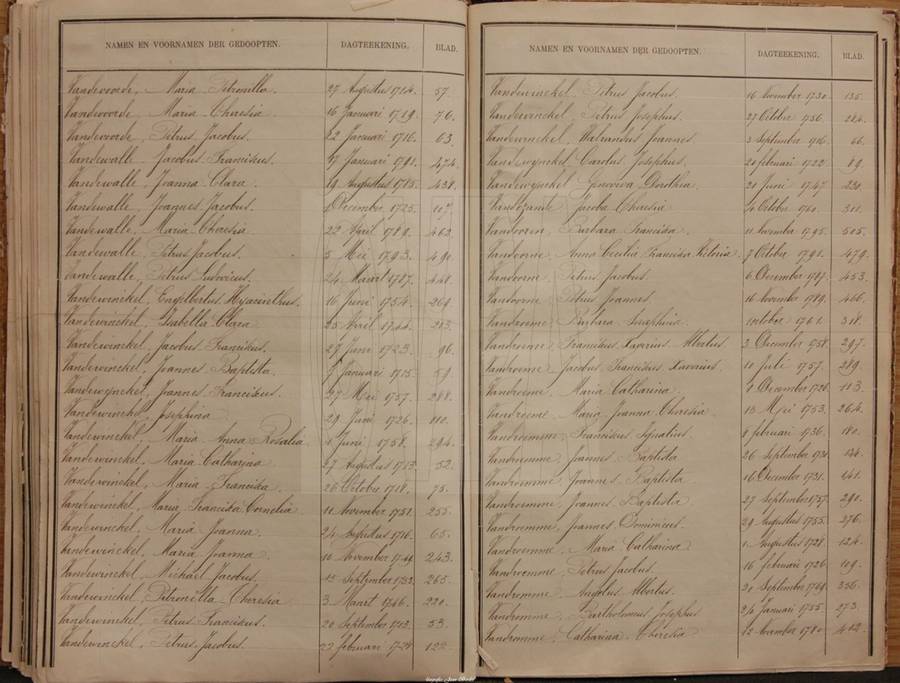 NAMEN EN VOORNAMEN DER GEDOOPTEN. DAGTEEKENING. BLAD.
Vandevoorde, Maria Petronilla. 27 Augustus 1714. 57.
Vandevoorde, Maria Theresia 16 Januari 1719. 76.
Vandevoorde, Petrus Jacobus. 22 Januari 1716. 63.
Vandewalle, Jacobus Franciskus. 17 Januari 1791. 474.
Vandewalle, Joanna Clara. 19 Augustus 1785. 438.
Vandewalle, Joannes Jacobus. December 1725. 107.
Vandewalle, Maria Theresia 22 April 1789. 462.
Vandewalle, Petrus Jacobus. 5 Mei 1793. 490.
Vandewalle, Petrus Ludovicus. 24 Maart 1787. 448.
Vandewinckel, Engelbertus Hyacinthus. 16 Juni 1754. 269.
Vandewinckel, Isabella Clara 25 April 1744. 213.
Vandewinckel, Jacobus Franciskus. 27 Juni 1723. 96.
Vandewinckel, Joannes Baptista. Januari 1715. 59.
Vandewynckel, Joannes Franciscus. 27 Mei 1757. 288.
Vandewinckel, Josephina 29 Juni 1726. 110.
Vandewinckel, Maria Anna Rosalia Juni 1758. 294.
Vandewinckel, Maria Catharina 27 Augustus 1713. 52.
Vandewinckel, Maria Franciska. 26 October 1718. 75.
Vandewinckel, Maria Franciska Cornelia 11 November 1751. 255.
Vandewinckel, Maria Joanna. 24 Augustus 1716. 65.
Vandewinckel, Maria Joanna. 10 November 1749. 243.
Vandewinckel, Michael Jacobus. 13 September 1753. 265.
Vandewinckel, Petronilla Theresia 3 Maart 1746. 220.
Vandewinckel, Petrus Franciskus. 20 September 1713. 53.
Vandewinckel, Petrus Jacobus. 22 februari 1728. 122.
NAMEN EN VOORNAMEN DER GEDOOPTEN. DAGTEEKENING. BLAD.
Vandewinckel, Petrus Jacobus. 16 November 1730. 135.
Vandewinckel, Petrus Josephus. 27 October 1756. 284.
Vandewinckel, Joannes 3 September 1716. 66.
Vandewynckel, Carolus Josephus. 20 februari 1722. 89.
Vandewynckel, Genoveva Dorothea. 20 Juni 1747. 230.
Jacoba Theresia 4 October 1760. 311.
Vandooren, Barbara Franciska. 11 November 1795. 505.
Vandoorne, Anna Cecilia Francisca Victoria. 7 October 1791. 479.
Vandoorne, Petrus Jacobus. 6 December 1787. 453.
Vandoorne, Petrus Joannes. 16 November 1789. 466.
Vandrome, Barbara Josephina. October 1761. 318.
Vandromme, Franciskus Xaverius Albertus. 3 December 1758. 297.
Vandroeme, Jacobus Franciskus Xaverius. 10 Juli 1757. 289.
Vandroeme, Maria Catharina 1 December 1726. 113.
Vandroeme, Maria Joanna Theresia 13 Mei 1753. 264.
Vandromme, Franciskus Ignatius. 8 februari 1736. 180.
Vandromme, Joannes Baptista 26 September 1731.
Vandromme, Joannes Baptista 16 December 1731. 141.
Vandromme, Joannes Baptista 27 September 1757. 290.
Vandromme, Joannes Dominicus. 29 Augustus 1755. 276.
Vandromme, Maria Catharina 1 Augustus 1728. 124.
Vandromme, Petrus Jacobus. 16 februari 1726. 109.
Vandromme, Albertus. 20 September 1768. 356.
Vandromme, Bartholomeus Josephus 26 Januari 1755. 273.
Vandromme, Catharina Theresia 12 November 1780. 412.